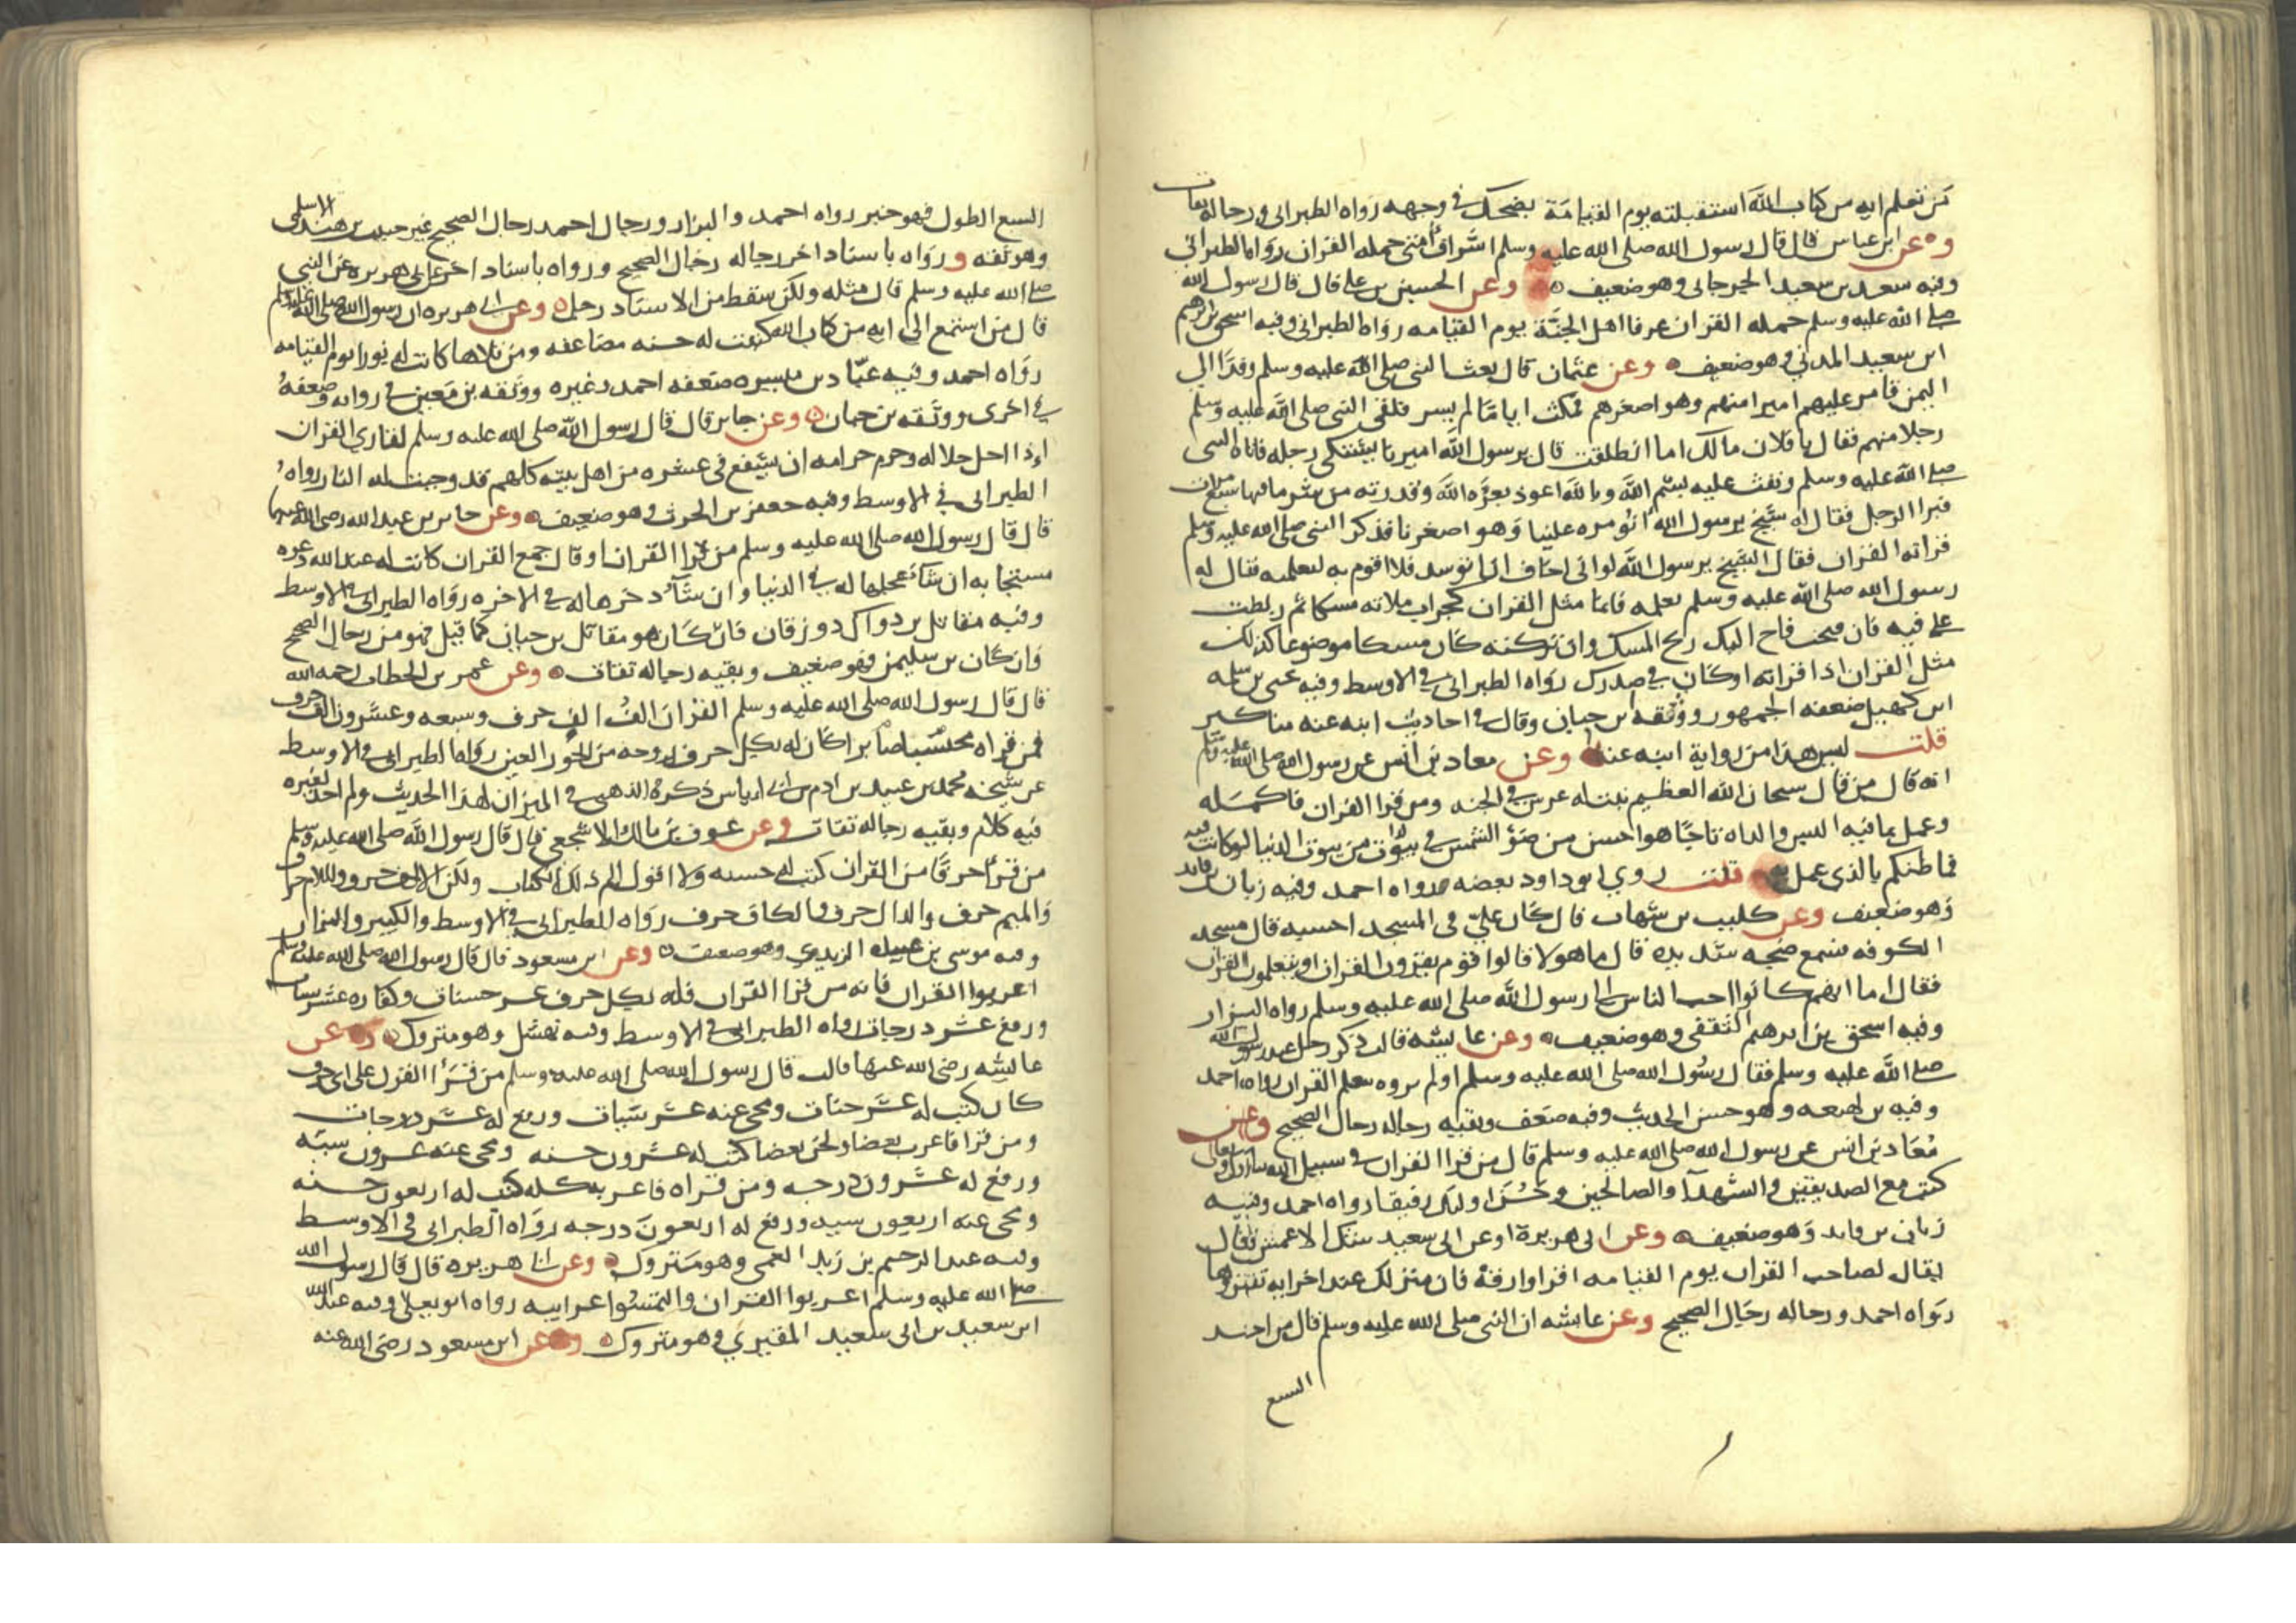 من تعلم ايه من كتاب الله استقبلته يوم القيامة يضحك في وجهه رواه الطبراني ورجاله ثقات
وعن ابن عباس قال قال رسول الله صلى الله عليه وسلم اشراف امتي حمله القران رواه الطبراني
وفيه سعد بن سعيد الجرجاني وهو ضعيف وعن الحسين بن علي قال قال رسول الله
صلى الله عليه وسلم حمله القران عرفا اهل الجنة يوم القيامه رواه الطبراني وفيه اسحق بن ابرهيم
ابن سعيد المدني وهو ضعيف وعن عثمان قال بعث النبي صلى الله عليه وسلم وفدا الي
اليمن فامر عليهم اميرا منهم وهو اصغرهم فمكث اياما لم يسر فلقى النبي صلى الله عليه وسلم
رجلا منهم فقال يا فلان مالك اما انطلقت قال يرسول الله اميرنا يشتكى رجله فاتاه النبي
صلى الله عليه وسلم ونفث عليه بسم الله وبالله اعوذ بعزه الله وقدرته من شر ما فيها سبع مرات
فبرا الرجل فقال له شيخ يرسول الله اتومره علينا وهو اصغرنا فذكر النبي صلى الله عليه وسلم
قراته القران فقال الشيخ يرسول الله لولا اني اخاف ان اتوسد فلا اقوم به لتعلمته فقال له
رسول الله صلى الله عليه وسلم تعلمه فانما مثل القران كجراب ملاته مسكا ثم ربطت
على فيه فان فتحت فاح اليك ريح المسك وان تركته كان مسكا موضوعا كذلك
مثل القران اذا قراته او كان في صدرك رواه الطبراني في الاوسط وفيه يحيى بن سلمه
ابن كهيل ضعفه الجمهور ووثقه ابن حبان وقال في احاديث ابنه عنه مناكير
قلت ليس هذا من رواية ابنه عنه وعن معاذ بن انس عن رسول الله صلى الله عليه وسلم
انه قال من قال سبحان الله العظيم نبت له غرس في الجنه ومن قرا القران فاكمله
وعمل بما فيه البس والداه تاجا هو احسن من ضؤ الشمس في بيوت من بيوت الدنيا لو كانت فيه
فما ظنكم بالذي عمل به قلت روي ابو داود بعضه رواه احمد وفيه زبان بن فايد
وهو ضعيف وعن كليب بن شهاب قال كان علي في المسجد احسبه قال مسجد
الكوفه فسمع ضجه شديده قال ما هولا قالوا قوم يقرون القران او يتعلمون القران
فقال اما انهم كانوا احب الناس الى رسول الله صلى الله عليه وسلم رواه البزار
وفيه اسحق بن ابرهيم الثقفي وهو ضعيف وعن عايشه قالت ذكر رجل عند رسول الله
صلى الله عليه وسلم فقال رسول الله صلى الله عليه وسلم اولم تروه يتعلم القران رواه احمد
وفيه بن لهيعه وهو حسن الحديث وفيه ضعف وبقيه رجاله رجال الصحيح وعن
معاذ بن انس عن رسول الله صلى الله عليه وسلم قال من قرا القران في سبيل الله تبارك وتعالى
كتب مع الصديقين والشهدآ والصالحين وحسن اوليك رفيقا رواه احمد وفيه
زبان بن فايد وهو ضعيف وعن ابي هريرة او عن ابي سعيد شك الاعمش قال
يقال لصاحب القران يوم القيامه اقرا وارقه فان منزلك عند اخر ايه تقروها
رواه احمد ورجاله رجال الصحيح وعن عايشه ان النبي صلى الله عليه وسلم قال من اخذ
السبع
السبع الطول فهو خير رواه احمد والبزار ورجال احمد رجال الصحيح غير حبيب بن هند الاسلمي
وهو ثقه ورواه باسناد اخر رجاله رجال الصحيح ورواه باسناد اخر عن ابي هريره عن النبي
صلى الله عليه وسلم قال مثله ولكن سقط من الاسناد رجل وعن ابي هريره ان رسول الله صلى الله عليه وسلم
قال من استمع الى ايه من كتاب الله كتبت له حسنه مضاعفه ومن تلاها كانت له نورا يوم القيامه
رواه احمد وفيه عباد بن ميسره ضعفه احمد وغيره ووثقه بن معين في روايه وضعفه
في اخرى ووثقه بن حبان وعن جابر قال قال رسول الله صلى الله عليه وسلم لقاري القران
اذا احل حلاله وحرم حرامه ان يشفع في عشره من اهل بيته كلهم قد وجبت له النار رواه
الطبراني في الاوسط وفيه جعفر بن الحرث وهو ضعيف وعن جابر بن عبد الله رضى الله عنهما
قال قال رسول الله صلى الله عليه وسلم من قرا القران او قال جمع القران كانت له عند الله دعوه
مستجابه ان شا عجلها له في الدنيا وان شآ دخرها له في الاخره رواه الطبراني في الاوسط
وفيه مقاتل بن دوال دوز قان فان كان هو مقاتل بن حيان كما قيل فهو من رجال الصحيح
وان كان بن سليمن فهو ضعيف وبقيه رجاله ثقات وعن عمر بن الخطاب رحمه الله
قال قال رسول الله صلى الله عليه وسلم القران الف الف حرف وسبعه وعشرون الف حرف
فمن قراه محتسبا صابرا كان له بكل حرف زوجه من الحور العين رواه الطبراني في الاوسط
عن شيخه محمد بن عبيد بن ادم بن ابي اياس ذكره الذهبي في الميزان لهذا الحديث ولم اجد لغيره
فيه كلام وبقيه رجاله ثقات وعن عوف بن مالك الاشجعي قال قال رسول الله صلى الله عليه وسلم
من قرا حرفا من القران كتب له حسنه ولا اقول الم ذلك الكتاب ولكن الالف حرف واللام حرف
والميم حرف والدال حرف والكاف حرف رواه الطبراني في الاوسط والكبير والبزار
وفيه موسى بن عبيده الربذي وهو ضعيف وعن ابن مسعود قال قال رسول الله صلى الله عليه وسلم
اعربوا القران فانه من قرا القران فله بكل حرف عشر حسنات وكفاره عشر سيات
ورفع عشر درجات رواه الطبراني في الاوسط وفيه نهشل وهو متروك وعن
عايشه رضى الله عنها قالت قال رسول الله صلى الله عليه وسلم من قرأ القران على اي حرف
كان كتب له عشر حسنات ومحي عنه عشر سيات ورفع له عشر درجات
ومن قرا فاعرب بعضا ولحن بعضا كتب له عشرون حسنه ومحى عنه عشرون سيه
ورفع له عشرون درجه ومن قراه فاعربه كله كتب له اربعون حسنه
ومحى عنه اربعون سيه ورفع له اربعون درجه رواه الطبراني في الاوسط
وفيه عبد الرحيم بن زيد العمي وهو متروك وعن ابي هريره قال قال رسول الله
صلى الله عليه وسلم اعربوا القران والتمسوا غرايبه رواه ابو يعلى وفيه عبد الله
ابن سعيد بن ابي سعيد المقبري وهو متروك وعن ابن مسعود رضى الله عنه